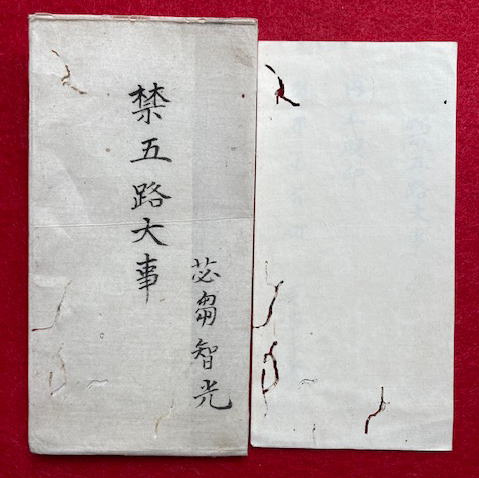 禁五路大事
苾芻智光